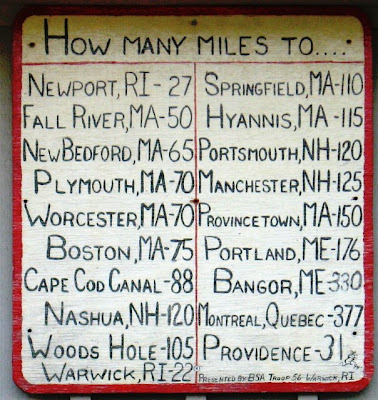 HOW MANY MILES TO....
NEWPORT, RI-27
FALL RIVER, MA-50
NEW BEDFORD, MA-65
PLYMOUTH, MA-70
WORCESTER, MA-70
BOSTON, MA-75
CAPE COD CANAL-88
NASHUA, NH-120
WOODS HOLE-105
WARWICK, RI-22
SPRINGFIELD, MA-110
HYANNIS, MA-115
PORTSMOUTH, NH-120
MANCHESTER, NH-125
PROVINCETOWN, MA-150
PORTLAND, ME-176
BANGOR, ME-330
MONTREAL, QUEBEC-377
PROVIDENCE-31
PRESENTED BY BSA TROOP 56 WARWICK, RI